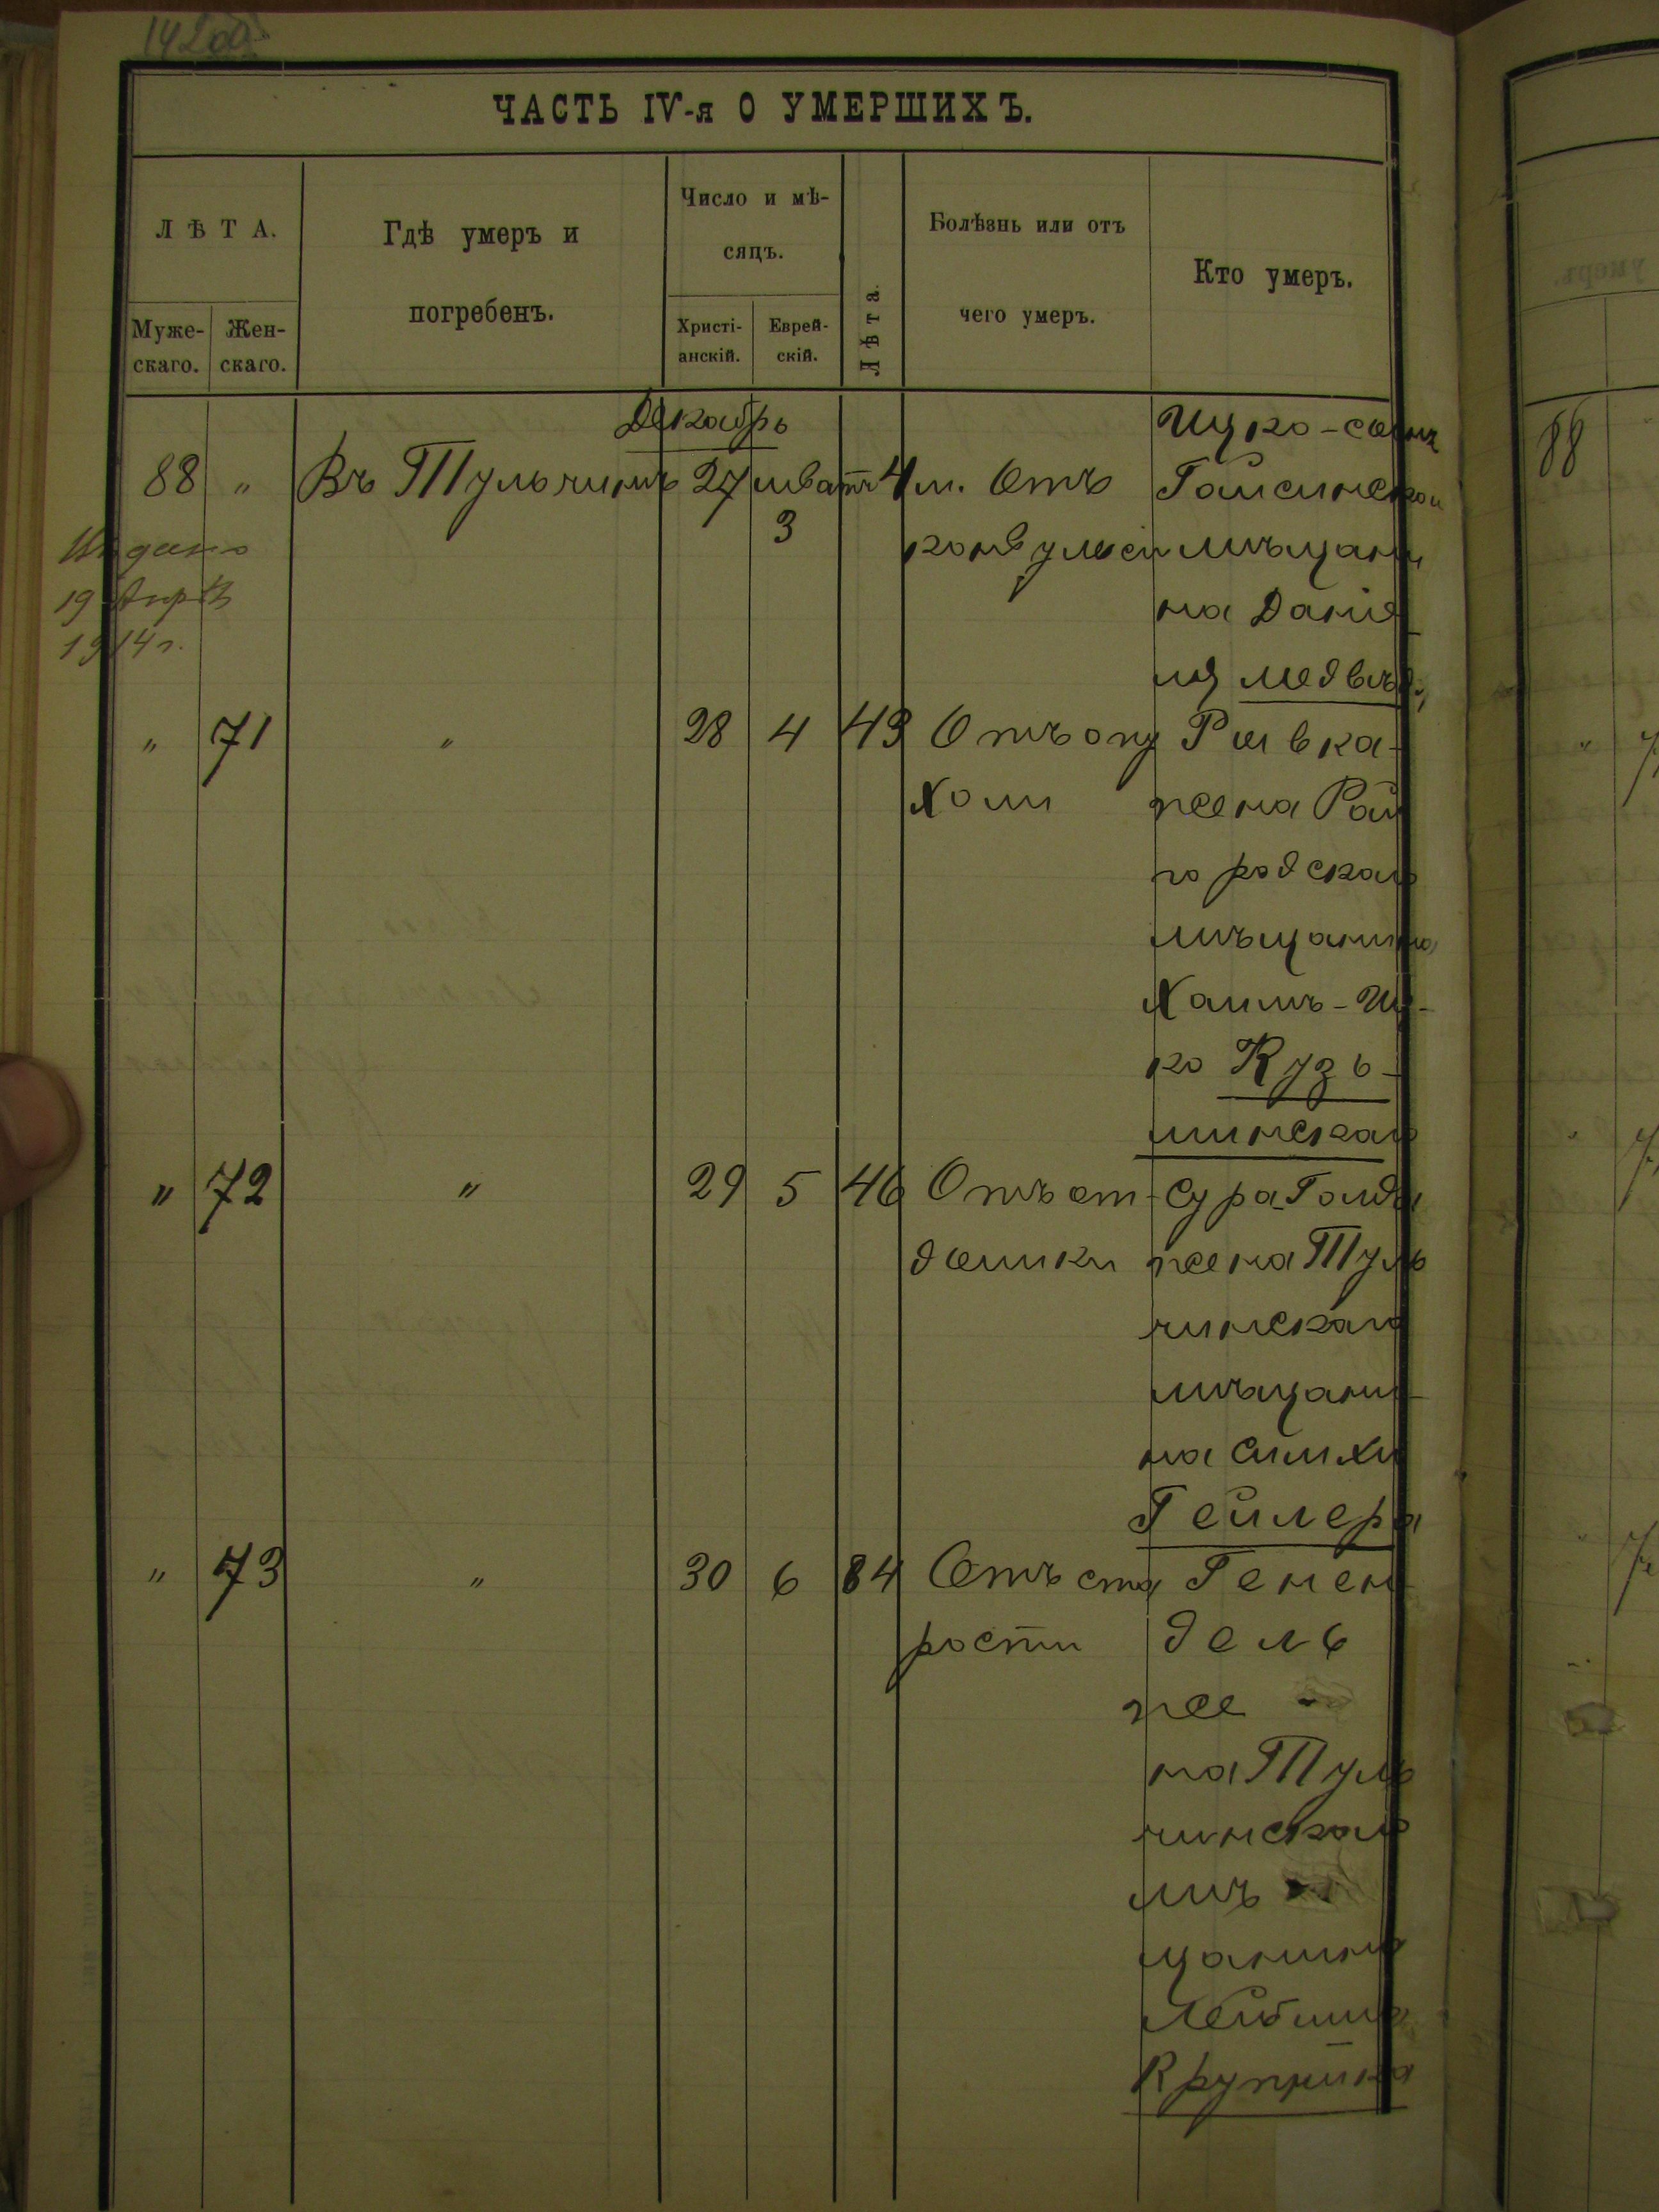 142об
ЧАСТЬ IV-я О УМЕРШИХЪ.
ЛѢТА.
Муже-
скаго.
Жен-
скаго.
Гдѣ умеръ и
погребенъ.
Число и мѣ-
сяцъ.
Христі-
анскій.
Еврей-
скій.
Лѣта.
Болѣзнь или отъ
чего умеръ.
Кто умеръ.
Декабрь
88 " Въ Тульчинѣ 27 шватъ 4 м. Отъ
3
конвульсіи
Ицко-сынъ
Гайсинскаго
мѣщани
на Даніе
ля Медвѣдь
19 Апрѣ
1914 г.
" 71 " 28 4 43 Отъ опу
холи
Ривка-
жена Рай
городскаго
мѣщанина
Хаимъ-Иц-
ко Кузь-
минскаго
" 72 " 29 5 46 Отъ от-
дышки
Сура-Голда
жена Туль
чинскаго
мѣщани-
на Симхи
Гейлера
" 73 " 30 6 84 Отъ ста
рости
Генен
дель
же
на Туль
чинскаго
мѣ
щанина
Лейбиша
88